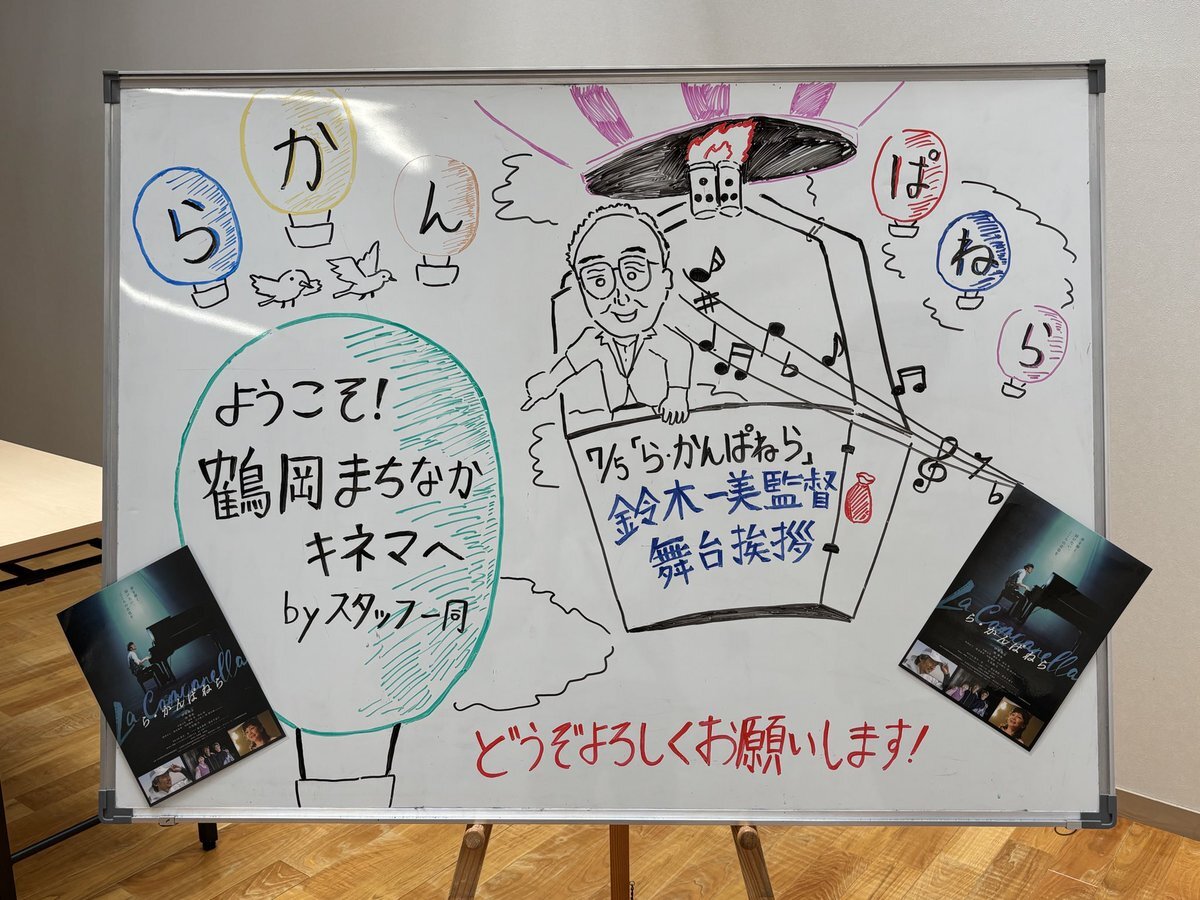 らかん
ぱねら
ようこそ！
鶴岡まちなか
キネマへ
byスタッフ一同
7/5「ら・かんぱねら」
鈴木一美監督
舞台挨拶
どうぞよろしくお願いします！
La Campanella
ら・かんぱねら
La Campanella
ら・かんぱねら